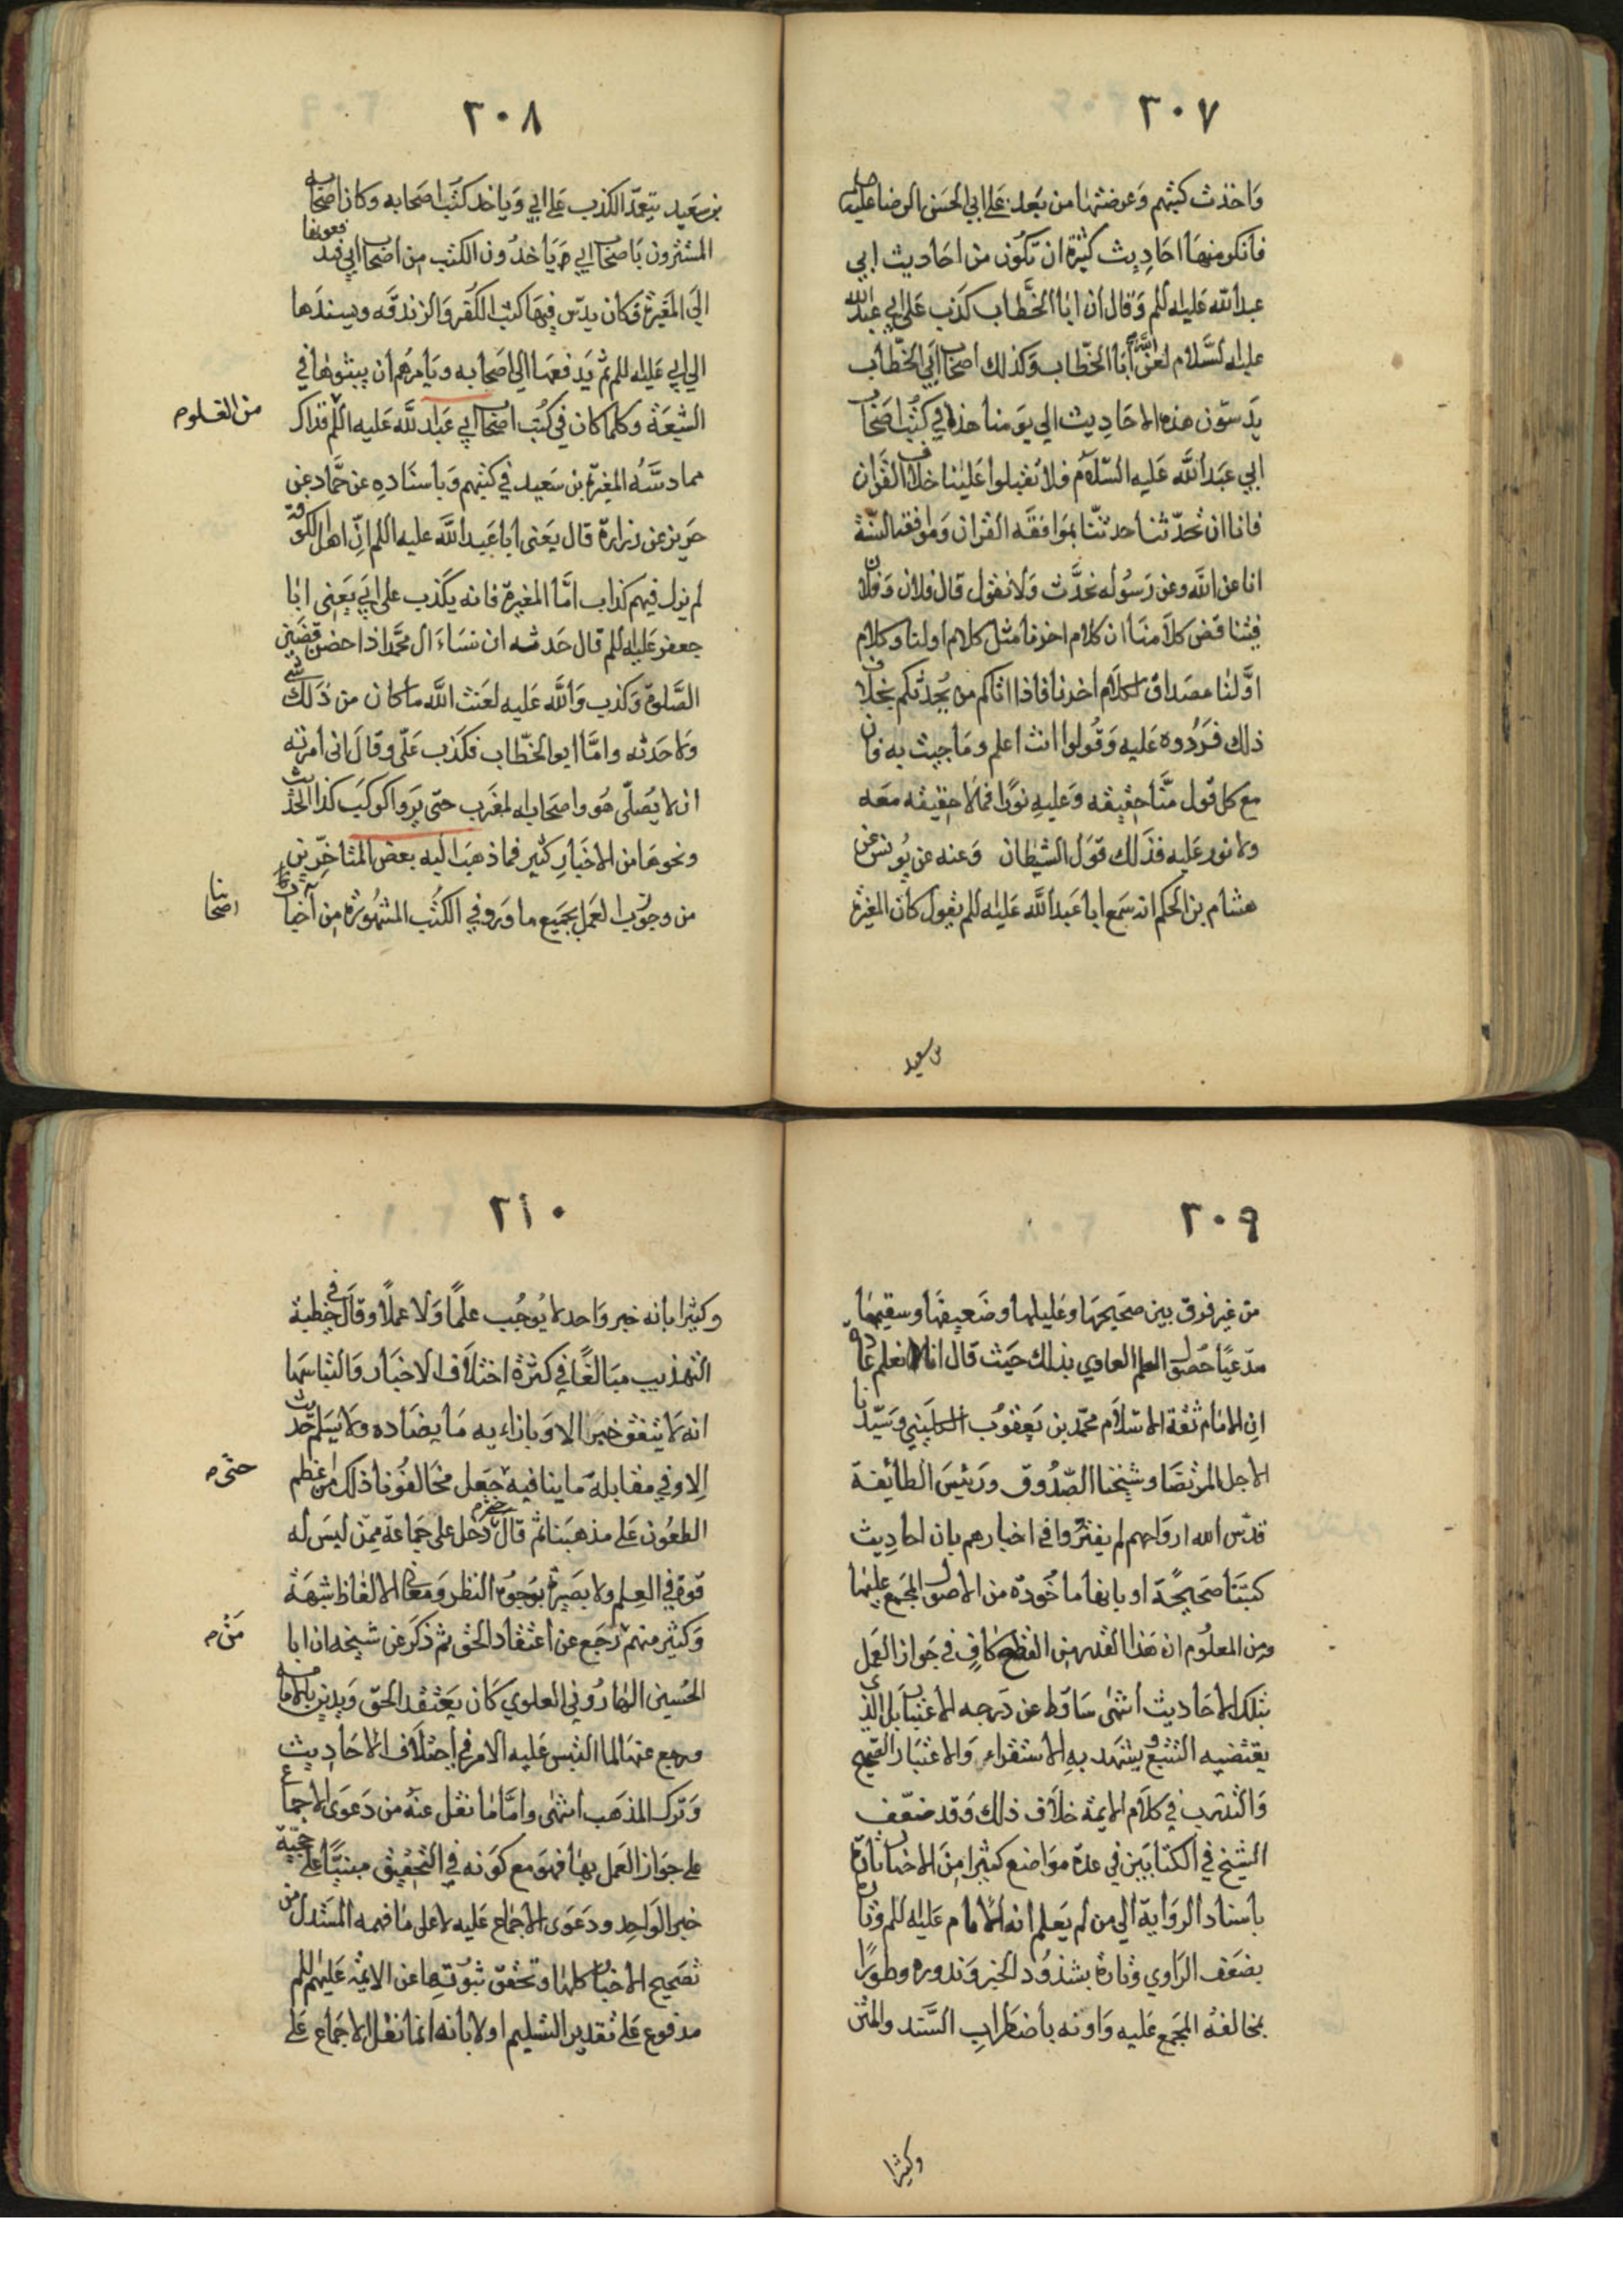 ٢٠٧
واخذت كتبهم وعرضتها من بعد على ابي الحسن الرضا عليه
فانكر منها احاديث كثيرة ان تكون من احاديث ابي
عبد الله عليه السلم وقال ان ابا الخطاب كذب على ابي عبد الله
عليه السلام لعن الله ابا الخطاب وكذلك اصحاب ابي الخطاب
يدسون هذه الاحاديث الي يومنا هذا في كتب اصحاب
ابي عبد الله عليه السلام فلا تقبلوا علينا خلاف القران
فانا ان تحدثنا حدثنا بموافقه القران وموافقه السنة
انا عن الله وعن رسوله نحدث ولا نقول قال فلان وفلان
فيتناقض كلامنا ان كلام اخرنا مثل كلام اولنا وكلام
اولنا مصداق لكلام اخرنا فاذا اتاكم من يحدثكم بخلاف
ذلك فردوه عليه وقولوا انت اعلم وما جيت به فان
مع كل قول منا حقيقه وعليه نورا فما لا حقيقه معه
ولا نور عليه فذلك قول الشيطان وعنه عن يونس عن
هشام بن الحكم انه سمع ابا عبد الله عليه السلم يقول كان المغيرة
بن سعيد
٢٠٨
بن سعيد يتعمد الكذب على ابي وياخذ كتب اصحابه وكان اصحابه
المستترون باصحاب ابي ياخذون الكتب من اصحاب ابي فيدفعونها
الى المغيرة فكان يدس فيها كتب الكفر والزندقه ويسندها
الي ابي عليه السلم ثم يدفعها الي اصحابه ويامرهم ان يبثوها في
الشيعة وكلما كان في كتب اصحاب ابي عبد الله عليه السلم فذاك
من الغلو
مما دسه المغيرة بن سعيد في كتبهم وباسناده عن حماد عن
حريز عن زرارة قال يعنى ابا عبد الله عليه السلم ان اهل الكوفة
لم يزل فيهم كذاب اما المغيرة فانه يكذب على ابي يعنى ابا
جعفر عليه السلم قال حدثه ان نساء ال محمد اذا حضن قضين
الصلوة وكذب والله عليه لعنة الله ما كان من ذلك شي
ولا حدثه واما ابو الخطاب فكذب علي وقال انى امرته
ان لا يصلى هو واصحابه المغرب حتى يروا كوكب كذا الحديث
ونحوها من الاخبار كثير فما ذهب اليه بعض المتاخرين
من وجوب العمل بجميع ما ورد في الكتب المشهورة من اخبار
اصحابنا
٢٠٩
من غير فرق بين صحيحها وعليلها وضعيفها وسقيمها
مدعيا حصول العلم العادي بذلك حيث قال انا نعلم عادة
ان الامام ثقة الاسلام محمد بن يعقوب الكليني وسيدنا
الاجل المرتضا وشيخنا الصدوق ورئيس الطائفة
قدس الله ارواحهم لم يفتروا في اخبارهم بان احاديث
كتبنا صحيحة او بانها ماخوذة من الاصول المجمع عليها
ومن المعلوم ان هذا القدر من القطع كاف في جواز العمل
بتلك الاحاديث انتهى ساقط عن درجه الاعتبار بل الذي
يقتضيه التتبع ويشهد به الاستقراء والاعتبار الصحيح
والتدرب في كلام الايمة خلاف ذلك وقد ضعف
الشيخ في الكتابين في عدة مواضع كثيرا من الاخبار تارة
باسناد الرواية الي من لم يعلم انه الامام عليه السلم وتارة
بضعف الراوي وتارة بشذوذ الخبر وندوره وطورا
بمخالفة المجمع عليه واونه باضطراب السند والمتن
وكثيرا
٢١٠
وكثيرا بانه خبر واحد لا يوجب علما ولا عملا وقال في خطبة
التهذيب مبالغا في كثرة اختلاف الاخبار والتباسها
انه لا يتفق خبر الا وبازاءه ما يضاده ولا يسلم حديث
الا وفي مقابلة ما ينافيه جعل مخالفونا ذلك من اعظم
حتى
الطعون على مذهبنا ثم قال دخل على جماعة ممن ليس له
قوة في العلم ولا بصيرة بوجوه النظر ومعاني الالفاظ شبهة
وكثير منهم رجع عن اعتقاد الحق ثم ذكر عن شيخه ان ابا
من
الحسين الهاروني العلوي كان يعتقد الحق ويدين بالامامة
ورجع عنها لما التبس عليه الامر في اختلاف الاحاديث
وترك المذهب انتهى واما ما نقل عنه من دعوى الاجماع
على جواز العمل بها فهو مع كونه في التحقيق مبنيا على حجية
خبر الواحد ودعوى الاجماع عليه لا على ما فهمه المستدل من
تصحيح الاخبار كلها وتحقق ثبوتها عن الايمة عليهم السلم
مدفوع على تقدير التسليم اولا بانه انما نقل الاجماع على